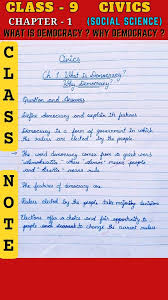 CLASS - 9 CIVICS
CHAPTER - 1 (SOCIAL SCIENCE)
WHAT IS DEMOCRACY ? WHY DEMOCRACY ?
CLASS
NOTE
Civics
Ch 1 What is Democracy?
Why Democracy?
Question and Answers
Define democracy and explain its features
Democracy is a form of government in which
the rulers are elected by the people
The word democracy comes from a greek word
"demokratia" where "demos" means people
and "kratia" means rule
The features of democracy are
Rulers elected by the people take major decisions
Elections offer a choice and fair opportunity to
people to change the current rulers